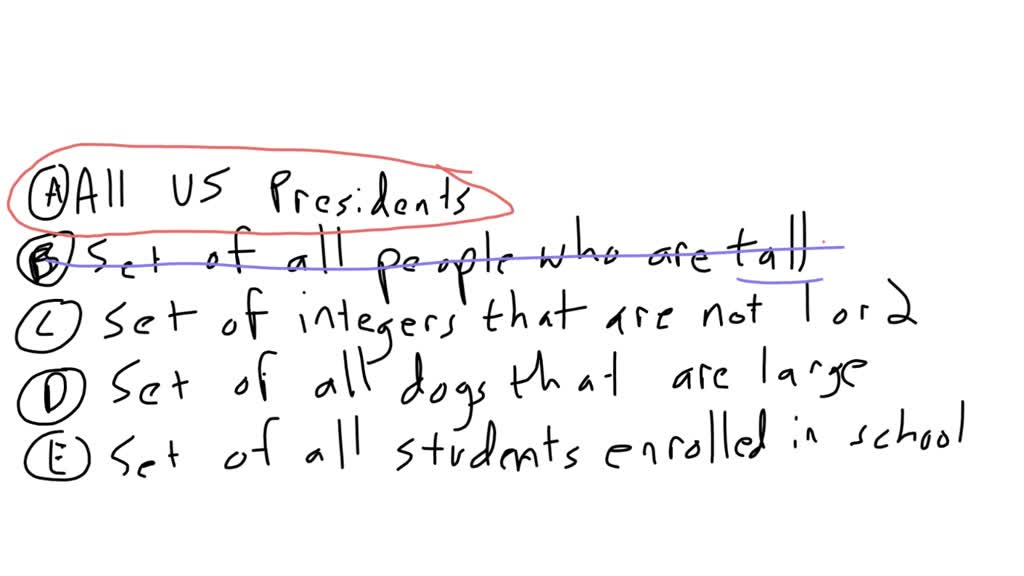 Ⓐ All US Presidents
Ⓑ Set of all people who are tall
Ⓒ Set of integers that are not 1 or 2
Ⓓ Set of all dogs that are large
Ⓔ Set of all students enrolled in school